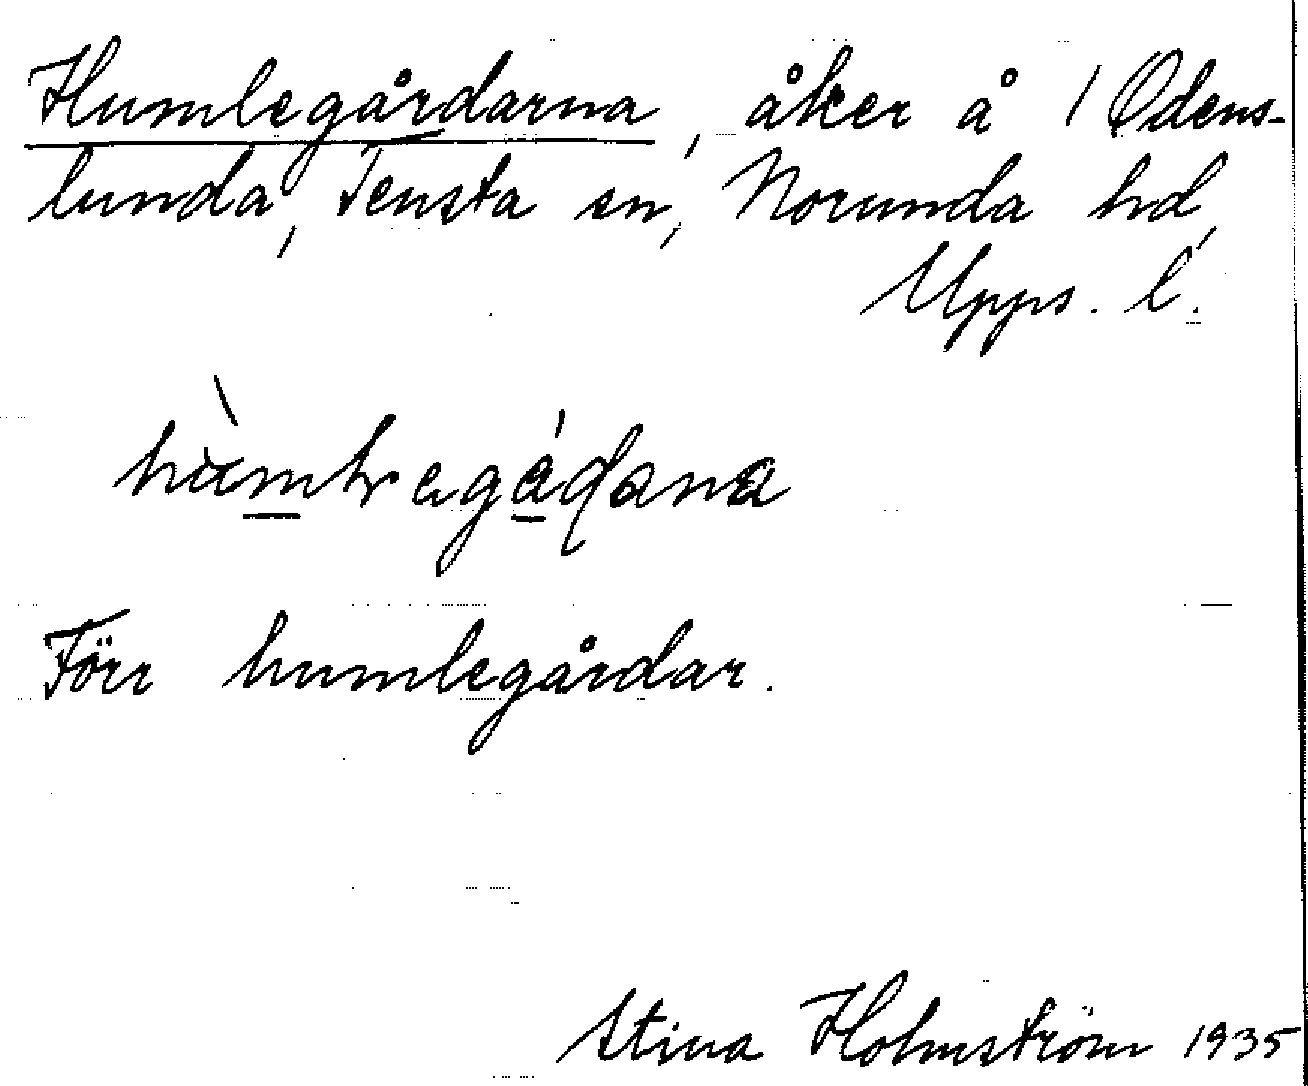 Humlegårdarna, åker å 1 Odens-
lunda, Tensta sn, Norunda hd,
Upps. l.
Förr humlegårdar.
Stina Holmström 1935